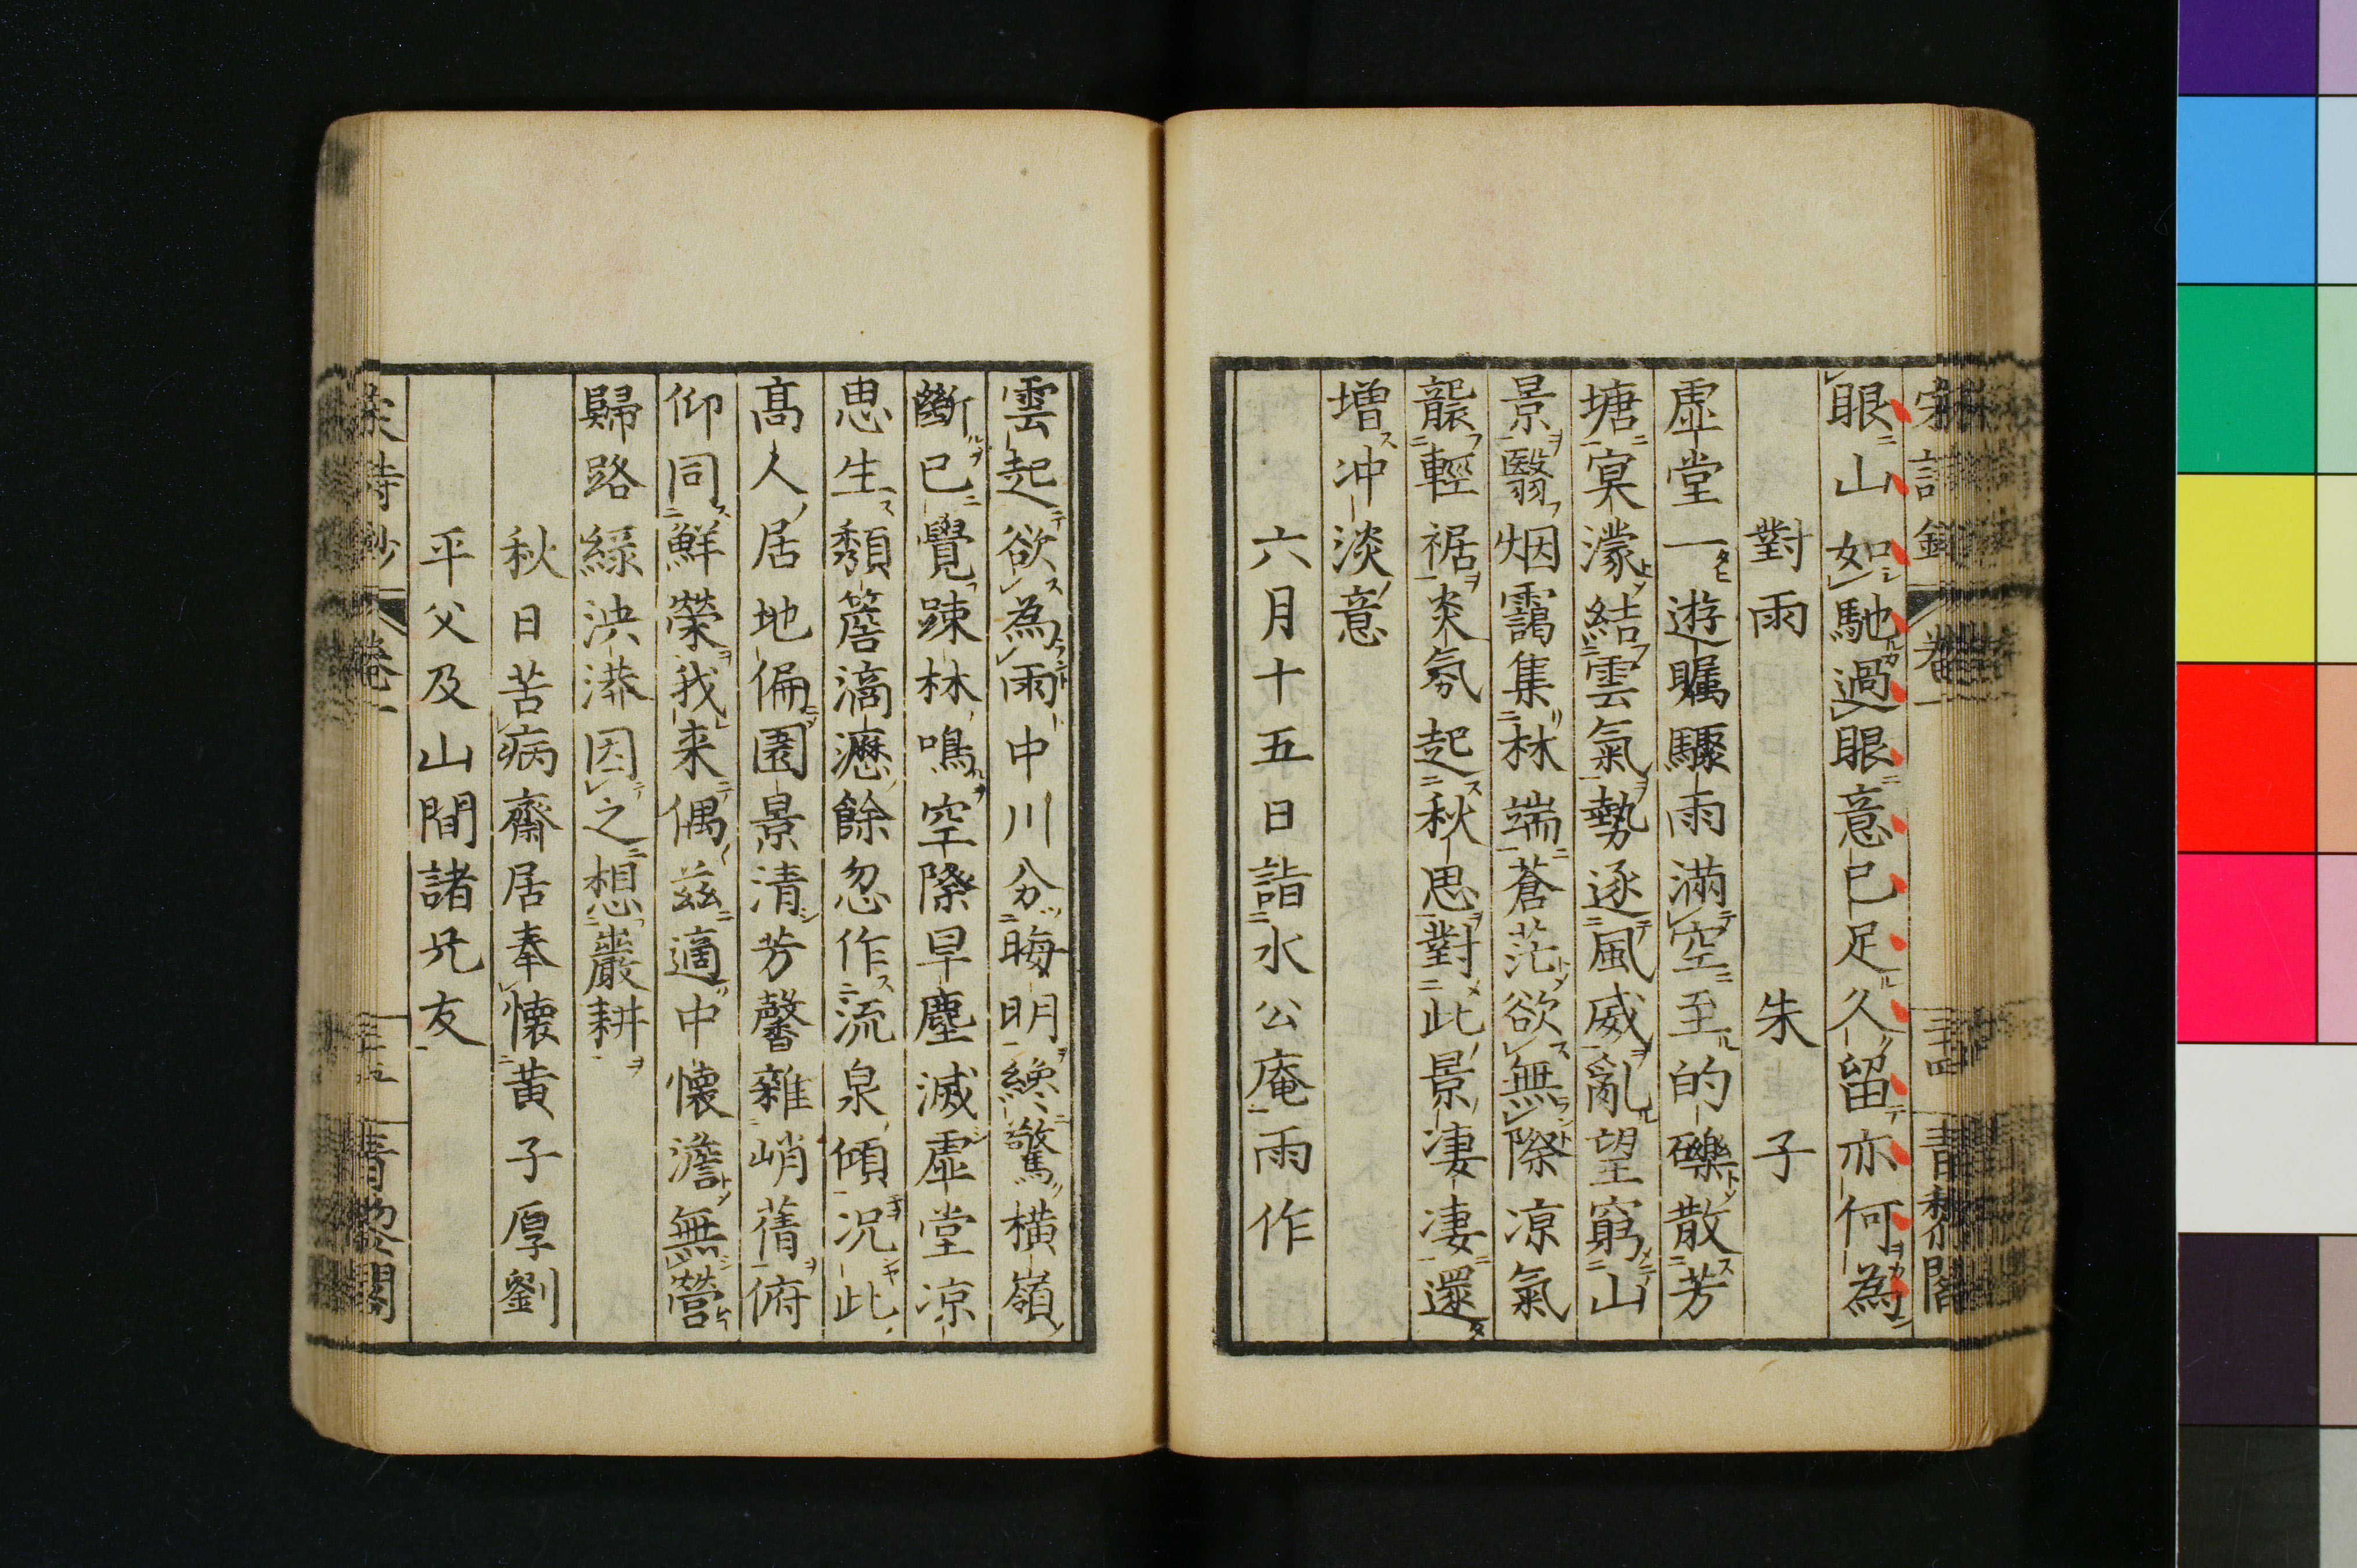 眼山如馳過眼意已足久留亦何為
對雨 朱子
虛堂一遊矚驟雨滿空至的礫散芳
塘㝠濛結雲氣勢逐風威亂望窮山
景翳烟靄集林端蒼茫欲無際凉氣
襲輕裾炎氛起秋思對此景凄凄還
増冲淡意
六月十五日詣水公庵雨作
雲起欲為雨中川分晦明纔驚橫嶺
斷已覺踈林鳴空際旱塵滅虛堂凉
思生頽簷滴瀝餘忽作流泉傾况此
高人居地偏園景清芳馨雜峭蒨俯
仰同鮮榮我来偶茲適中懐澹無營
歸路綠泱漭因之想巖耕
秋日苦病齋居奉懐黄子厚劉
平父及山間諸兄友